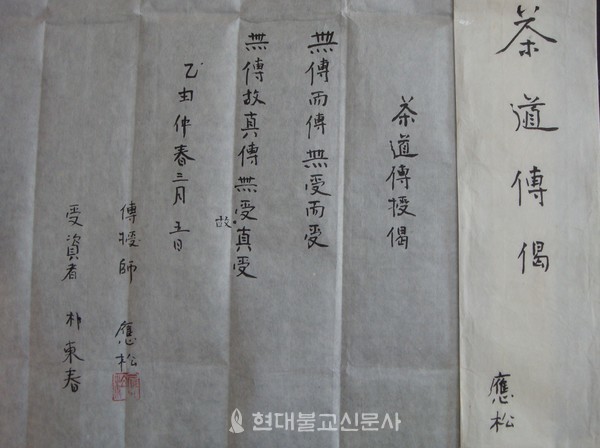 茶道傳偈
應松
茶道傳授偈
無傳而傳無受而受
無傳故真傳無受故真受
乙丑仲春三月五日
傳授師 應松
受資者 朴東春
현대불교신문사